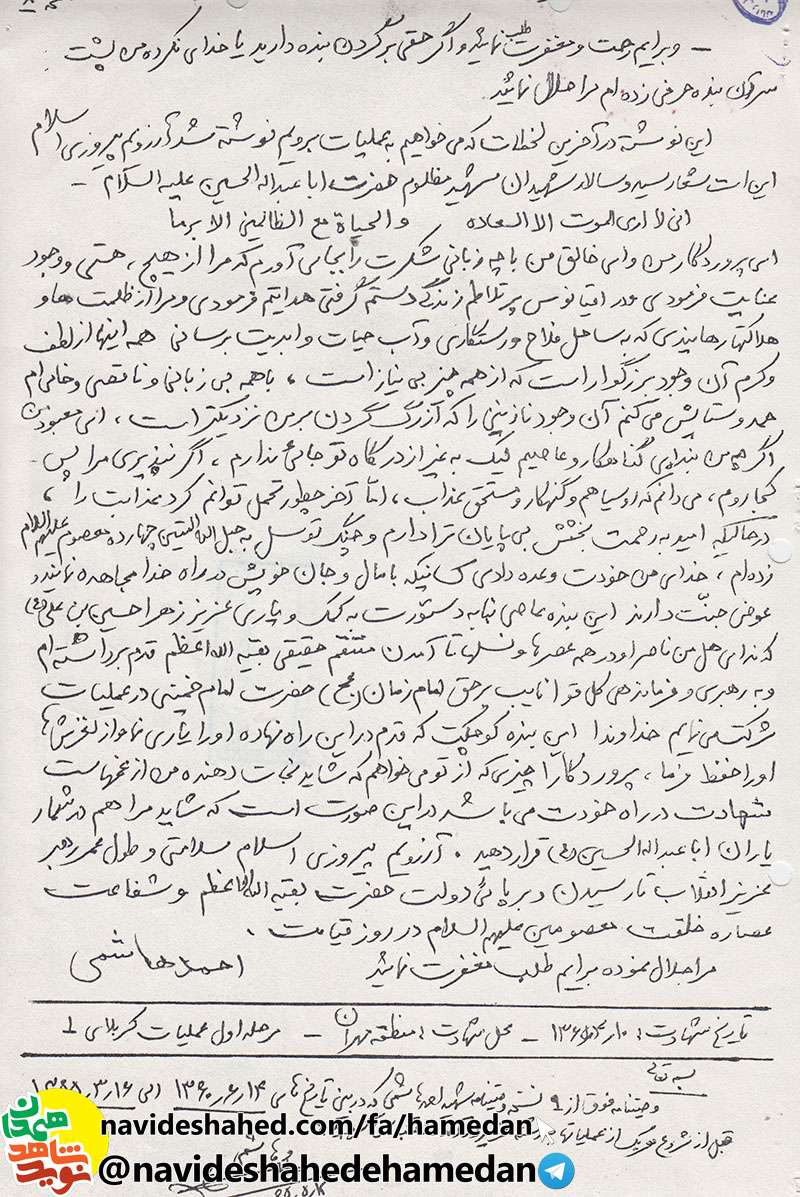 – و برایم رحمت و مغفرت طلب نمائید و اگر حقی بر گردن بنده دارید یا خدای نکرده من پشت
سرتان بنده حرفی زده ام مرا حلال نمائید
این نوشته در آخرین لحظات که می خواهیم به عملیات برویم نوشته شد آرزویم پیروزی اسلام
این است شعار سید و سالار شهیدان شهید مظلوم حضرت ابا عبداله الحسین علیه السلام –
انی لا اری الموت الا السعاده والحیاة مع الظالمین الا برما
ای پروردگار من و ای خالق من با چه زبانی شکرت را بجا می آورم که مرا از هیچ ، هستی و وجود
عنایت فرمودی و در اقیانوس پر تلاطم زندگی دستم گرفتی هدایتم فرمودی و مرا از ظلمت ها و
هلاکتها رهانیدی که به ساحل فلاح و رستگاری و آب حیات و ابدیت برسانی همه اینها از لطف
و کرم آن وجود بزرگوار است که از همه چیز بی نیاز است ، با همه بی زبانی و ناقصی و خامی ام
حمد و ستایش می کنم آن وجود نازنینی را که از رگ گردن بر من نزدیکتر است ، ای معبود من
اگر چه من بنده ای گناهکار و عاصیم لیک به غیر از درگاه تو جائی ندارم ، اگر نپذیری مرا پس
کجا روم ، می دانم که رو سیاهم و گنهکار و مستحق عذاب ، امّا آخر چطور تحمل توانم کرد عذابت را ،
در حالیکه امید به رحمت بخشش بی پایان ترا دارم و چنگ توسل به حبل الله المتین چهارده معصوم علیهم السلام
زده ام ، خدای من خودت وعده دادی کسانیکه با مال و جان خویش در راه خدا مجاهده نمایند
عوض جنّت دارند این بنده عاصی بنا به دستورت به کمک و یاری عزیز زهرا حسین بن علی (ع)
که ندای هل من ناصر او در همه عصرها و نسلها تا آمدن منتقم حقیقی بقیه الله اعظم قدم برداشته ام
و به رهبری و فرماندهی کل قوا نایب بر حق امام زمان (عج) حضرت امام خمینی در عملیات
شرکت می نمایم خداوندا این بنده کوچکت که قدم در این راه نهاده او را یاری نما و از لغزش ها
او را حفظ فرما ، پروردگارا چیزی که از تو می خواهم که شاید نجات دهنده من از غمهاست
شهادت در راه خودت می باشد در این صورت است که شاید مرا هم در شمار
یاران ابا عبداله الحسین (ع) قرار دهید . آرزویم پیروزی اسلام سلامتی و طول عمر رهبر
عزیز انقلاب تا رسیدن و بر پائی دولت حضرت بقیه الله الاعظم و شفاعت
عصاره خلقت معصومین علیهم السلام در روز قیامت .
مرا حلال نموده برایم طلب مغفرت نمائید احمد هاشمی
تاریخ شهادت : ۱۰ر۴ر۱۳۶۵ – محل شهادت : منطقه مهران – مرحله اول عملیات کربلای ۱
بسمه تعالی
وصیتنامه فوق از ۹ نسخه وصیتنامه شهید احمد هاشمی که در بین تاریخ های ۱۴ر۶ر۱۳۶۰ الی ۱۶ر۳ر
قبل از شروع هر یک از عملیاتها
navideshahed.com/fa/hamedan
@navideshahedehamedan
نوید شاهد همدان